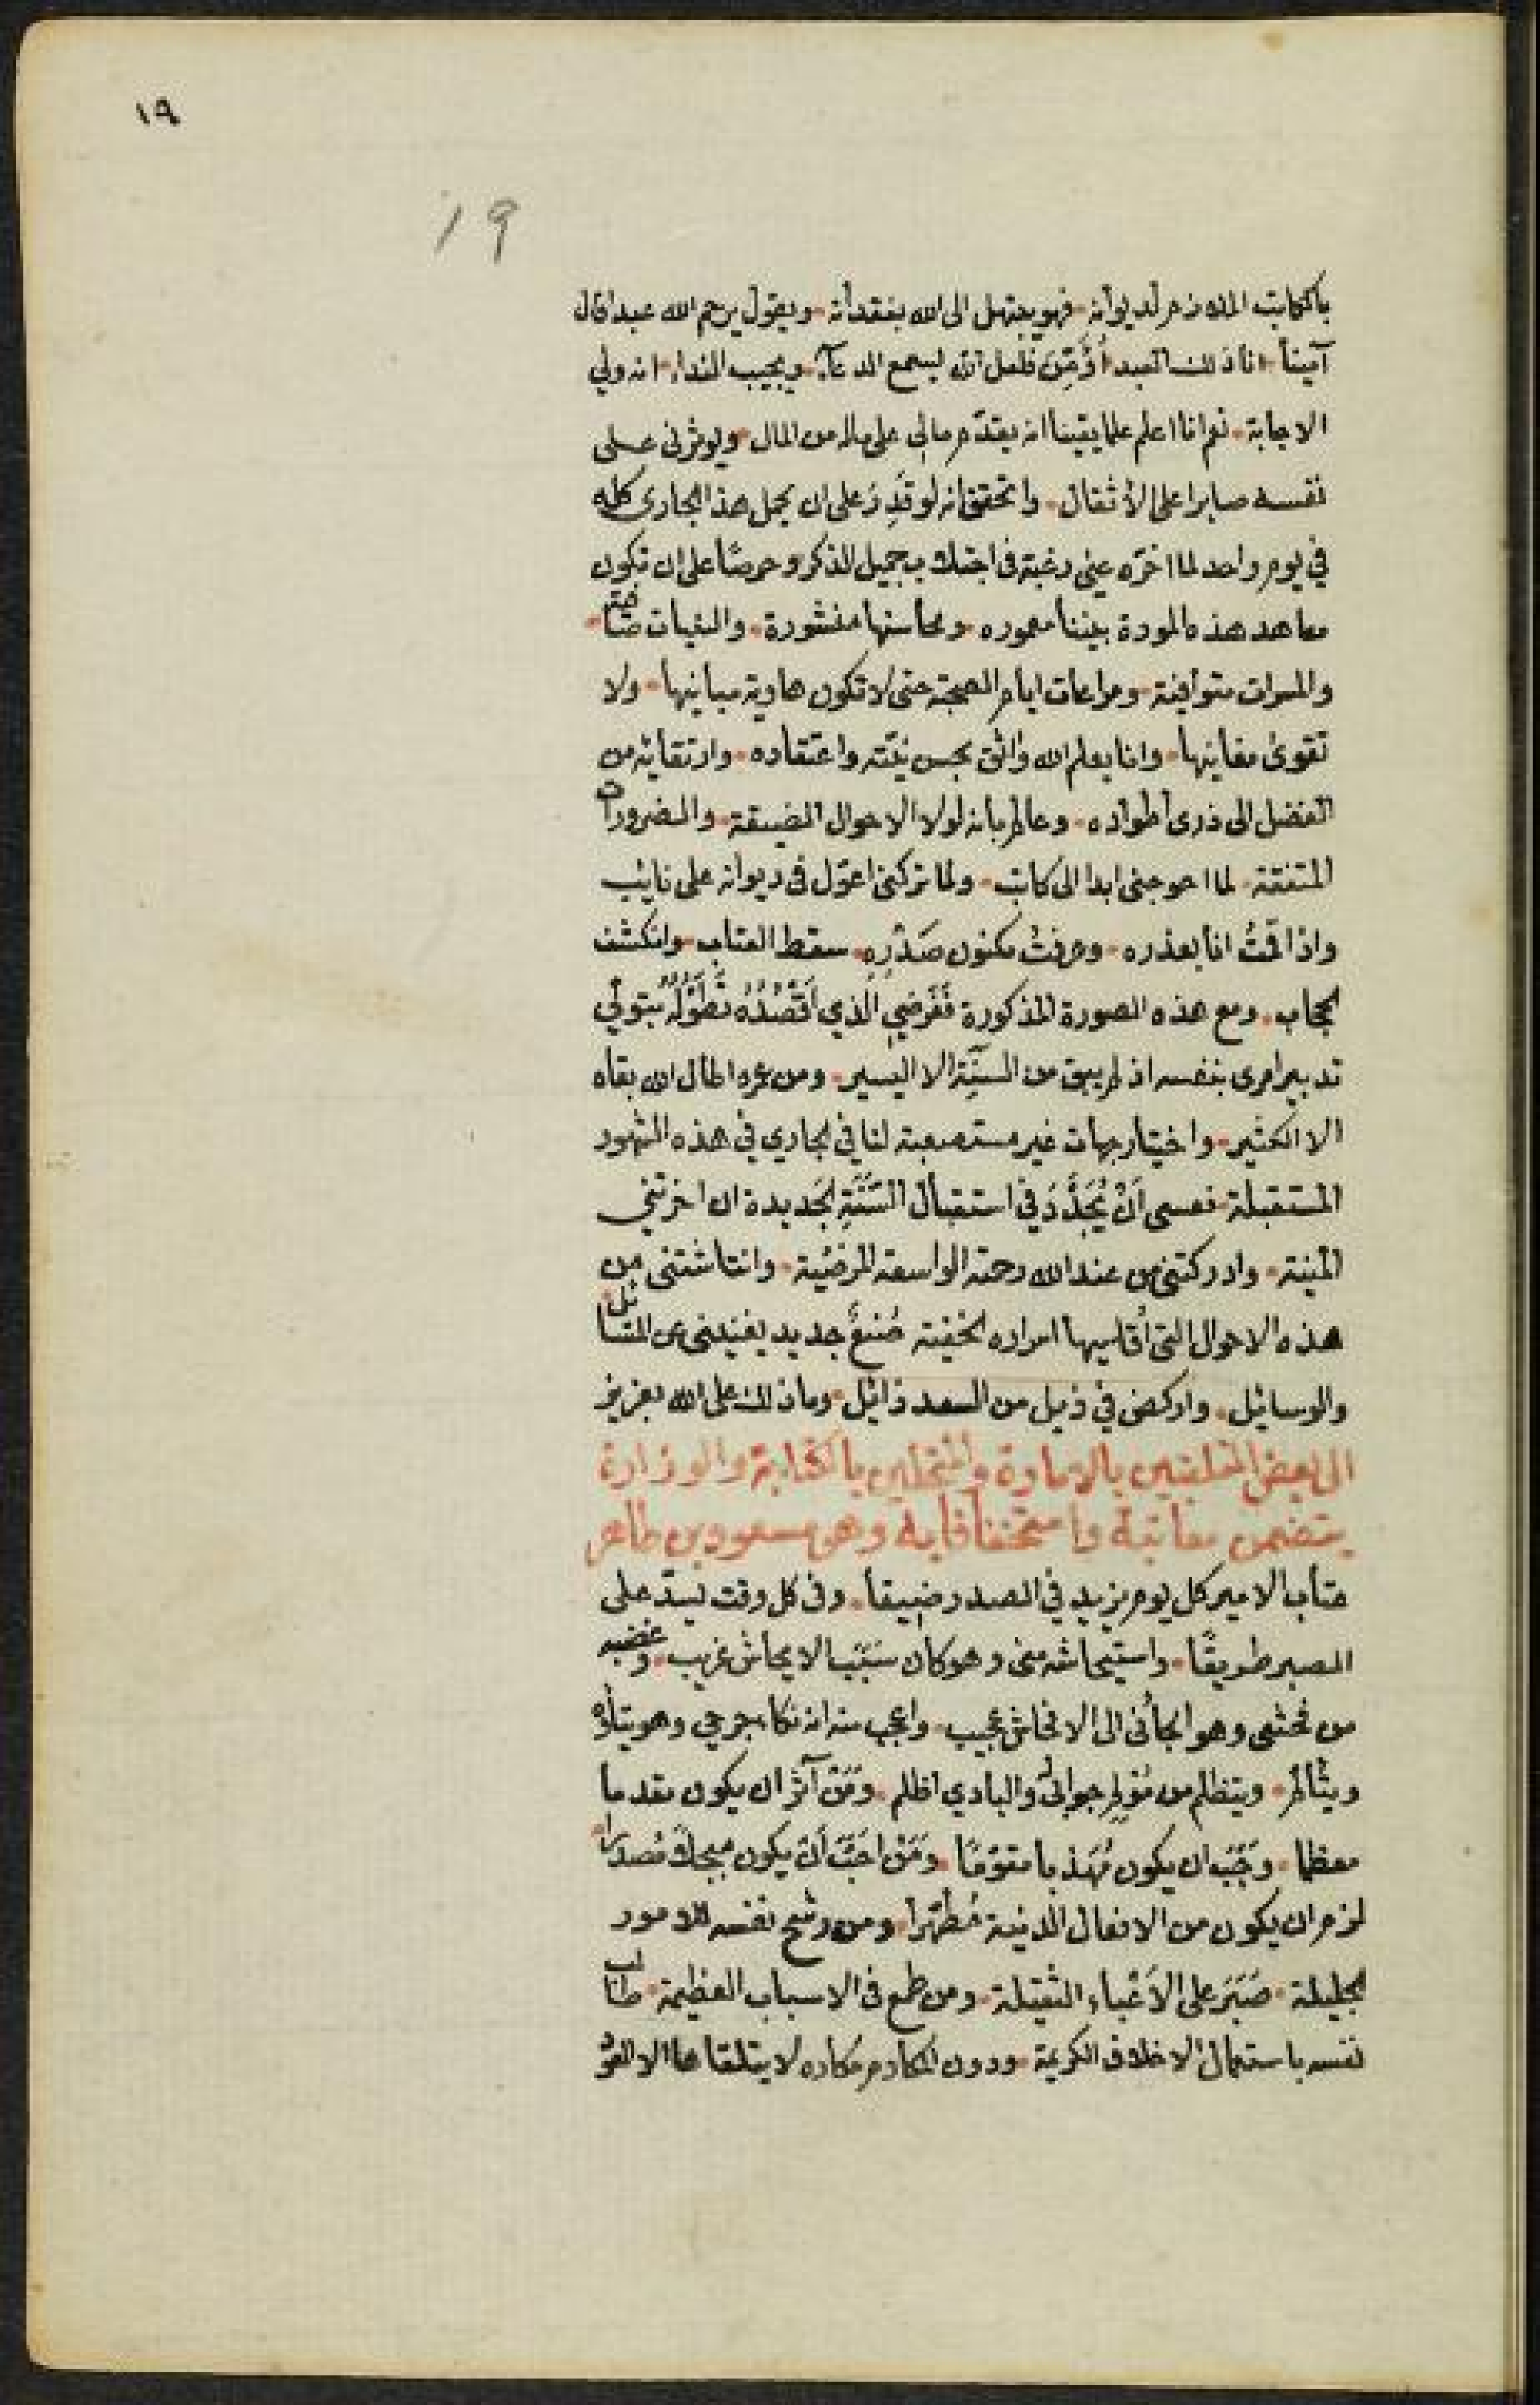 ١٩
١٩
بالكاتب الملازم لديوانه فهو يبتهل الى الله بفقدانه ويقول يرحم الله عبدا قال
آمينا انا ذلك العبد أؤمّن فلعل الله ليسمع الدعآء ويجيب النداء انه ولي
الاجابة نعم انا اعلم علما يقينا انه يقدّم مالي على ماله من المال ويوثرنى على
نفسه صابرا على الأثقال واتحقق انه لو قَدِرَ على ان يحمل هذا الجارى كله
في يوم واحد لما اخّره عني رغبة فى اجتلاب جميل الذكر وحرصًا على ان تكون
معاهد هذه المودة بيننا معموره ومحاسنها منشورة والنيات صافية
والمسرات متوافية ومراعات ايام الصحبة حتى لا تكون هاوية مبانيها ولا
تقوى مغانيها وانا يعلم الله واثق بحسن نيّته واعتقاده وارتقائه من
الفضل الى ذرى أطواده وعالم بأنه لولا الاحوال المضيقة والضرورات
المتفقة لما احوجنى ابدا الى كاتب ولما تركنى اعوّل فى ديوانه على نايب
واذا قمتُ انا بعذره وعرفتُ مكنون صَدْرِهِ سقط العتاب وانكشف
الحجاب ومع هذه الصورة المذكورة فَغَرضي الذي اَقْصُدُهُ تَطَوُّلُهُ بتولي
تدبير امرى بنفسه اذ لم يبق من السَنِّة الا اليسير ومن عمره اطال الله بقاه
الا الكثير واختيار جهات غير مستصعبة لنا في الجاري في هذه الشهور
المستقبلة فعسى اَنْ يُجَدِّدَ في استقبال السَّنَةِ الجَديدة ان اخرتني
المنية وادركتنى من عند الله رحمته الواسعة المرضية وانتاشتنى من
هذه الاحوال التى أقاسيها اسراره الخفية صُنعٌ جديد يغنينى عن المسائل
والوسائل واركض في ذيل من السعد ذائل وما ذلك على الله بعزيز
الى بعض المتلقبين بالامارة والمنتحلين بالكتابة والوزارة
يتضمن معاتبة واستخفافا به وهو مسعود بن طاهر
عتاب الامير كل يوم يزيد في الصدر ضيقا وفى كل وقت يسدّ على
الصبر طريقًا واستيحاشه منى وهو كان سَبَبَ الايحاش غريب وغضبه
من فحشى وهو الجأنى الى الافحاش عجيب واعجب منه انه نكا بجرحي وهو يتأوّه
ويتألم ويتظلم من مُؤلِمِ جوابيْ والبادي اظلم ومَنْ آثر ان يكون مقدما
معظما وَجَبَ ان يكون مُهَذبا مقوّمًا ومَنْ احَبَّ اَن يكون مبجلاً مُصدرا
لزم ان يكون من الافعال الدنية مُطَهّرا ومن رشح نفسه للامور
الجليلة صَبَرَ على الاَعْباءِ الثقيلة ومن طمع فى الاسباب العظيمة طالب
نفسه باستعمال الاخلاق الكريمة ودون المكارم مكاره لا يتلقاها الا